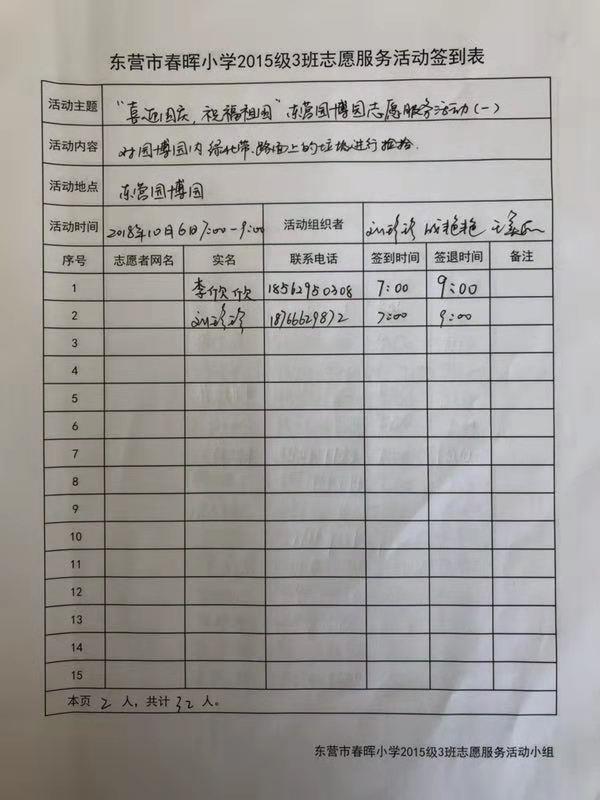 东营市春晖小学2015级3班志愿服务活动签到表
活动主题 “喜迎国庆，祝福祖国”东营园博园志愿服务活动（一）
活动内容 对园博园内绿化带、路面上的垃圾进行捡拾.
活动地点 东营园博园
活动时间 2018年10月6日7:00-9:00 活动组织者 刘珍珍 成艳艳
序号 志愿者网名 实名 联系电话 签到时间 签退时间 备注
1 李欣欣 18562950308 7:00 9:00
2 刘珍珍 18766629872 7:00 9:00
3
4
5
6
7
8
9
10
11
12
13
14
15
本页 2 人，共计 32 人。
东营市春晖小学2015级3班志愿服务活动小组